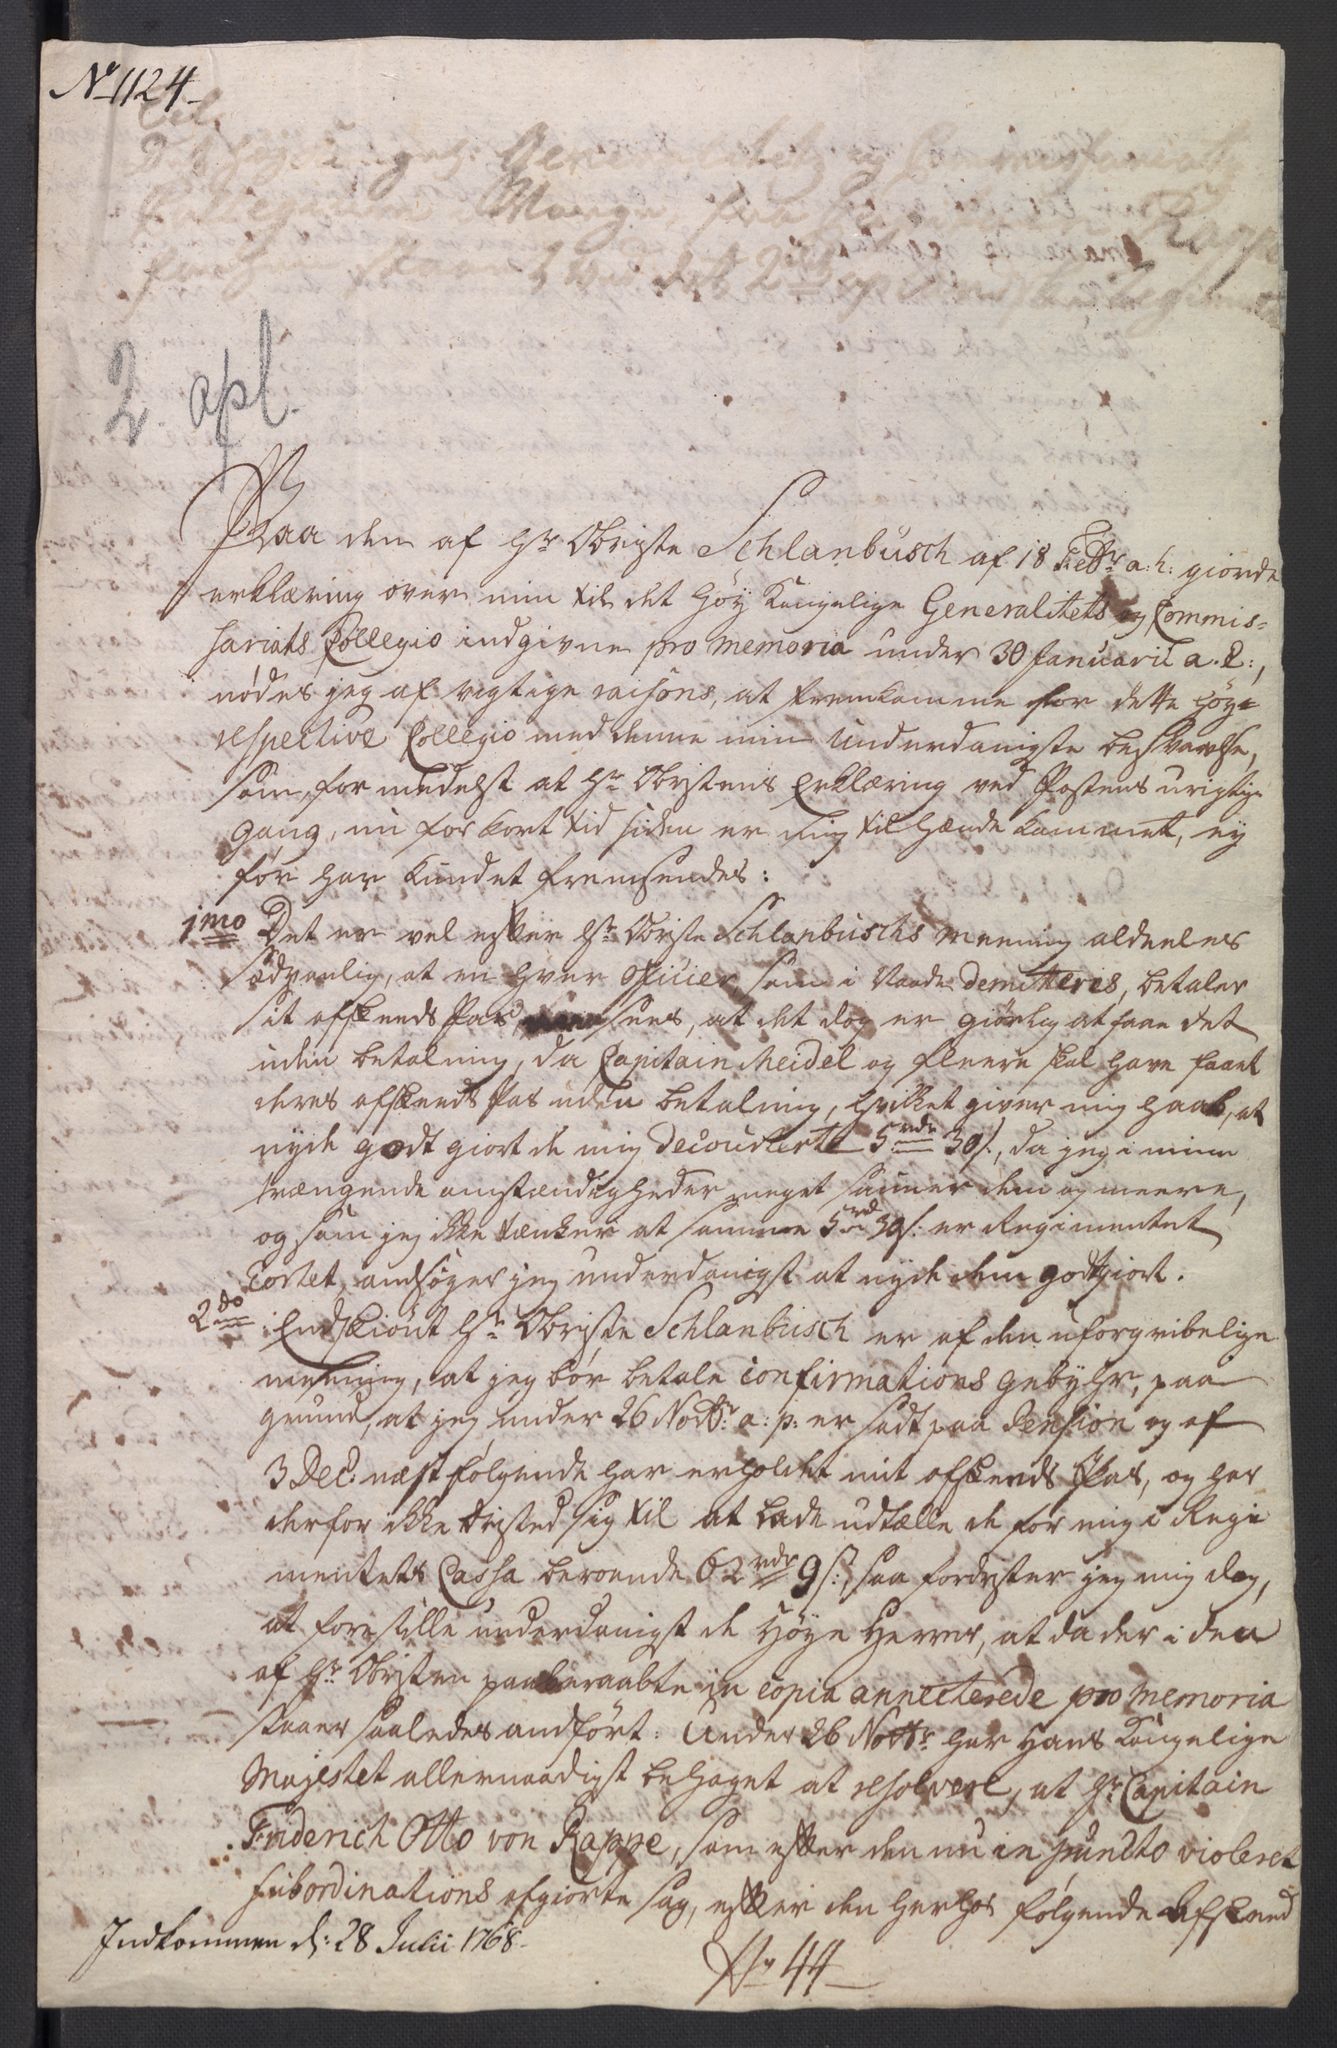 No 1124
Til
Det høye Kongel: Generalitetz og Commissariats
Collegium i Norge, fra Capitain Rappe
2. apl.
Paa den af Hr Obriste Schlanbusch af 18 Febr: a: h: giorde
erklæring over min til det Høy Kongelige Generalitets og Commis-
sariats Collegio indgivne pro memoria under 30 Januarii a. c:,
nødes jeg af vigtige raisons, at fremkomme for dette høy-
respective Collegio med denne min underdanigste besvarelse,
som, formedelst at Hr Obristens Erklæring ved Postens urigtige
gang, nu for kort tid siden er mig til hænde kommet, ey
før har kundet fremsendes:
1mo Det er vel efter Hr Obriste Schlanbuschs meening aldeeles
sædvanlig, at en hver officier, som i Naade demitteres, betaler
sit afskeeds Pas, sees, at det dog er giørlig at faae det
uden betaling, da Capitain Meidel og fleere skal have faaet
deres afskeeds Pas uden betaling, hvilket giver mig haab, at
nyde godt giort de mig decourterte 5 rdr 30 s., da jeg i mine
trængende omstændigheder meget savner dem og meere,
og som jeg ikke tænker at samme 5 rd 30 s: er Regimentet
costet, ansøger jeg underdanigst at nyde dem godtgiort.
2do Endskiønt Hr Obriste Schlanbusch er af den uforgribelige
meening, at jeg bør betale confirmations gebyhr, paa
grund, at jeg under 26 Novbr: a: p: er sadt paa Pension og af
3 Dec: næstfølgende har erholdet mit afskeeds Pas, og har
derfor ikke dristed sig til at lade udtælle de for mig i Regi
mentets Cassa beroende 62 rdr 9 s:, saa fordrister jeg mig dog,
at forestille underdanigst de Høye Herrer, at da der i den
af Hr Obristen paaberaabte in copia annecterede pro memoria
staaer saaledes andført: Under 26 Novbr: har Hans Kongelige
Majestet allernaadigst behaget at resolvere, at Hr Capitain
Friderich Otto von Rappe, som efter den nu in puncto violeret
subordinations afgiorte sag, efter den herhos følgende Afskeed
Indkommen d: 28 Julii 1768.
No 44